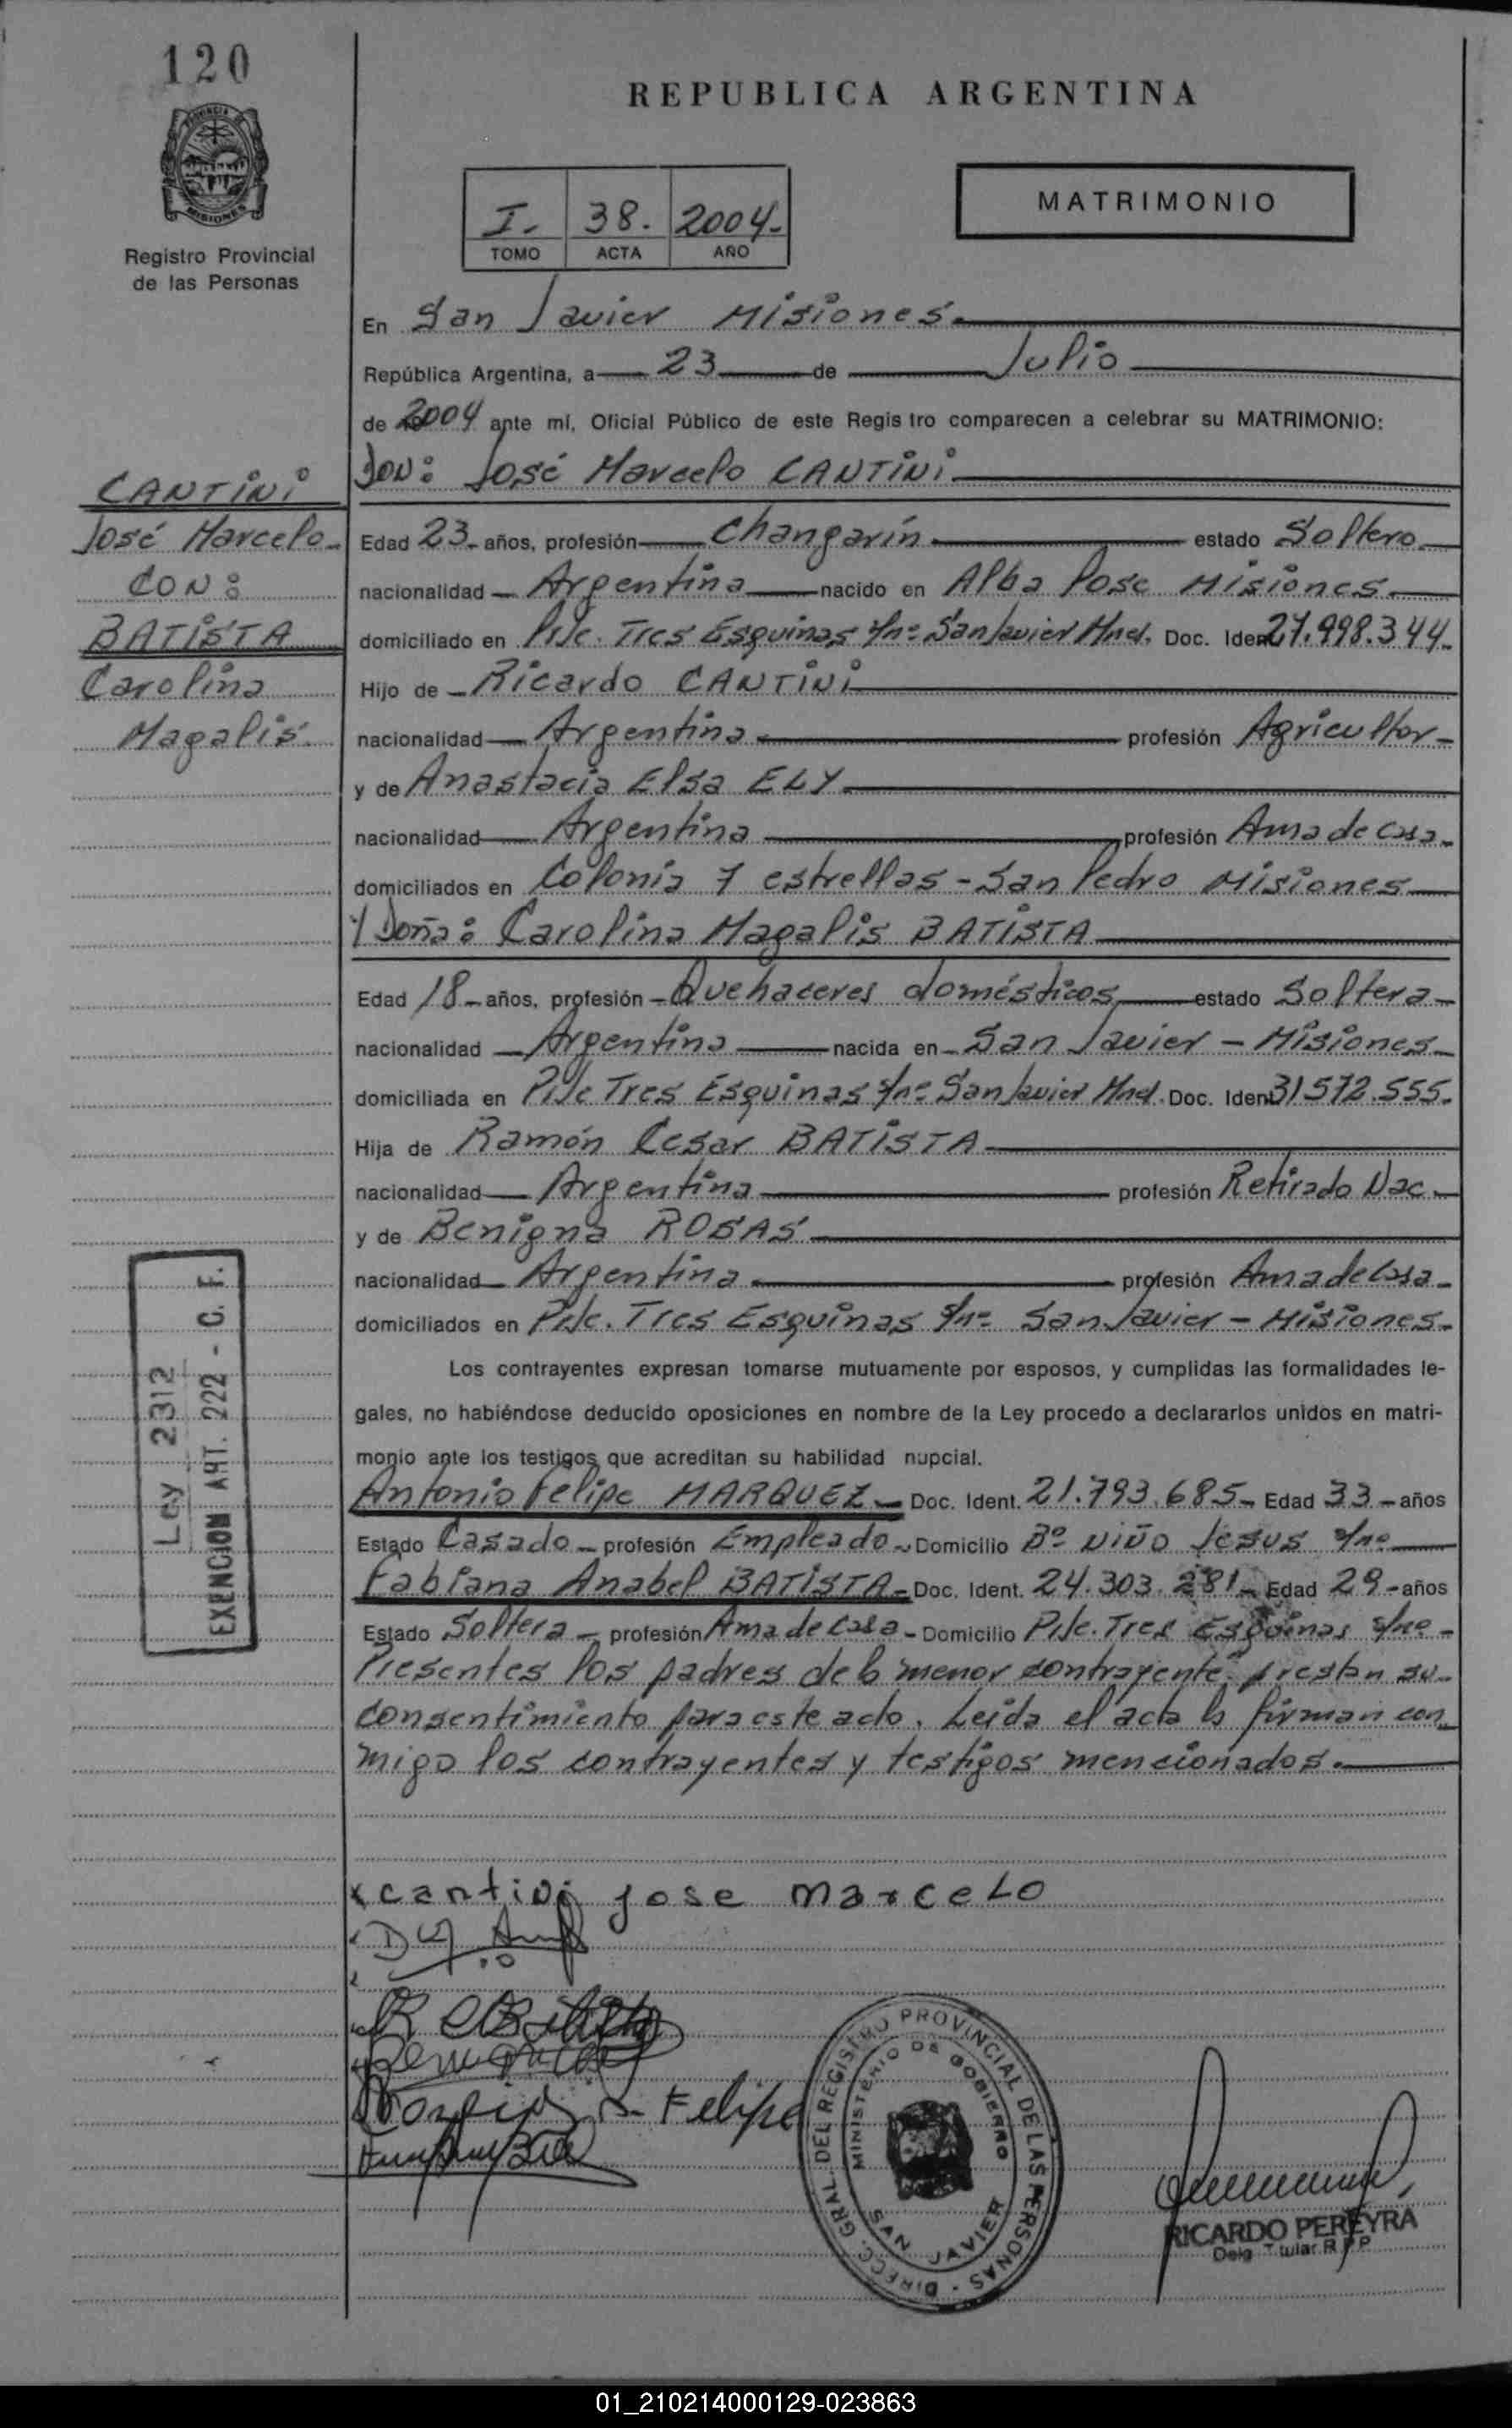 120
REPUBLICA ARGENTINA
PROVINCIA DE
MISIONES
Registro Provincial
de las Personas
I. 38. 2004-
TOMO ACTA AÑO
MATRIMONIO
En San Javier Misiones.
República Argentina, a 23 de Julio
de 2004 ante mí, Oficial Público de este Regis tro comparecen a celebrar su MATRIMONIO:
Don: José Marcelo CANTiNi
CANTiNi
José Marcelo-
CON:
BATiSTA
Carolina
Magalis.
Edad 23- años, profesión Changarín estado Soltero
nacionalidad Argentina nacido en Alba Pose Misiones.
domiciliado en Pje. Tres Esquinas s/nº San Javier Mnes. Doc. Iden 27.998.344-
Hijo de Ricardo CANTiNi
nacionalidad Argentina profesión Agricultor-
y de Anastacia Elsa ELY
nacionalidad Argentina profesión Ama de casa-
domiciliados en Colonia 7 estrellas - San Pedro Misiones
Y Doña: Carolina Magalis BATiSTA
Edad 18- años, profesión - Quehaceres domésticos estado Soltera-
nacionalidad Argentina nacida en San Javier - Misiones-
domiciliada en Pje Tres Esquinas s/nº San Javier Mnes. Doc. Ident 31572.555.
Hija de Ramón Cesar BATiSTA
nacionalidad Argentina profesión Retirado Nac.
y de Benigna ROSAS
nacionalidad Argentina profesión Ama de casa-
domiciliados en Pje. Tres Esquinas s/nº San Javier - Misiones-
Los contrayentes expresan tomarse mutuamente por esposos, y cumplidas las formalidades le-
gales, no habiéndose deducido oposiciones en nombre de la Ley procedo a declararlos unidos en matri-
monio ante los testigos que acreditan su habilidad nupcial.
Antonio Felipe MARQUEZ- Doc. Ident. 21.793.685- Edad 33- años
Estado Casado- profesión Empleado- Domicilio Bº NiÑO Jesus s/nº
Fabiana Anabel BATiSTA- Doc. Ident. 24.303.281- Edad 29- años
Estado Soltera- profesión Ama de casa- Domicilio Pje. Tres Esquinas s/nº-
Presentes los padres de la menor contrayente, prestan su-
consentimiento para este acto. Leída el acta la firman con
migo los contrayentes y testigos mencionados.
Ley 2312
EXENCION ART. 222 - C. F.
x cantini jose marcelo
Felipe
DIRECC. GRAL. DEL REGISTRO PROVINCIAL DE LAS PERSONAS
MINISTERIO DE GOBIERNO
SAN JAVIER
RICARDO PEREYRA
Deleg. Titular R.P.P
01_210214000129-023863